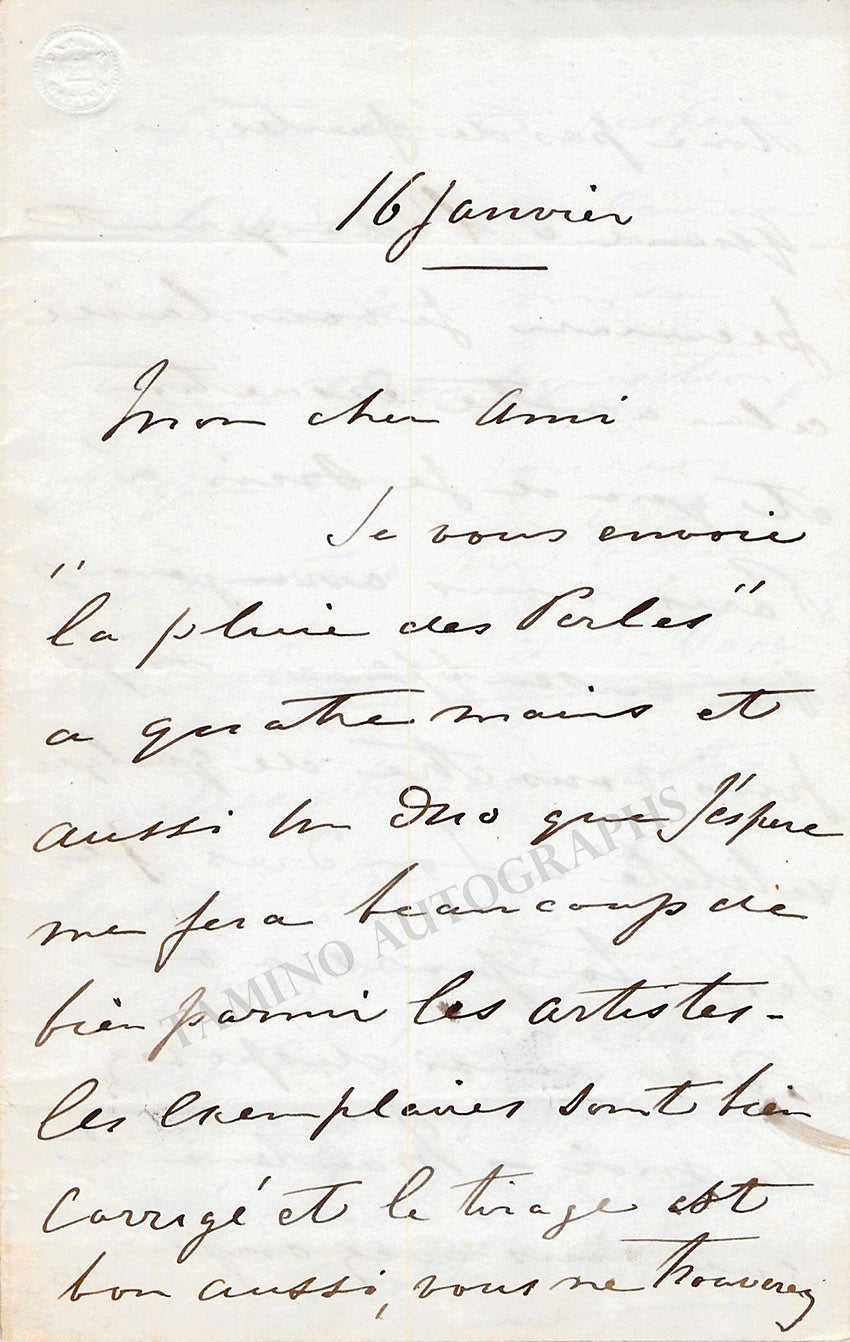 16 Janvier
Mon cher Ami
Je vous envoie
"la pluie des Perles"
a quatre mains et
aussi un Duo que J'éspere
me fera beaucoup de
bien parmi les artistes -
les exemplaires sont bien
corrigé et le tirage est
bon aussi, vous ne trouverez
TAMINO AUTOGRAPHS